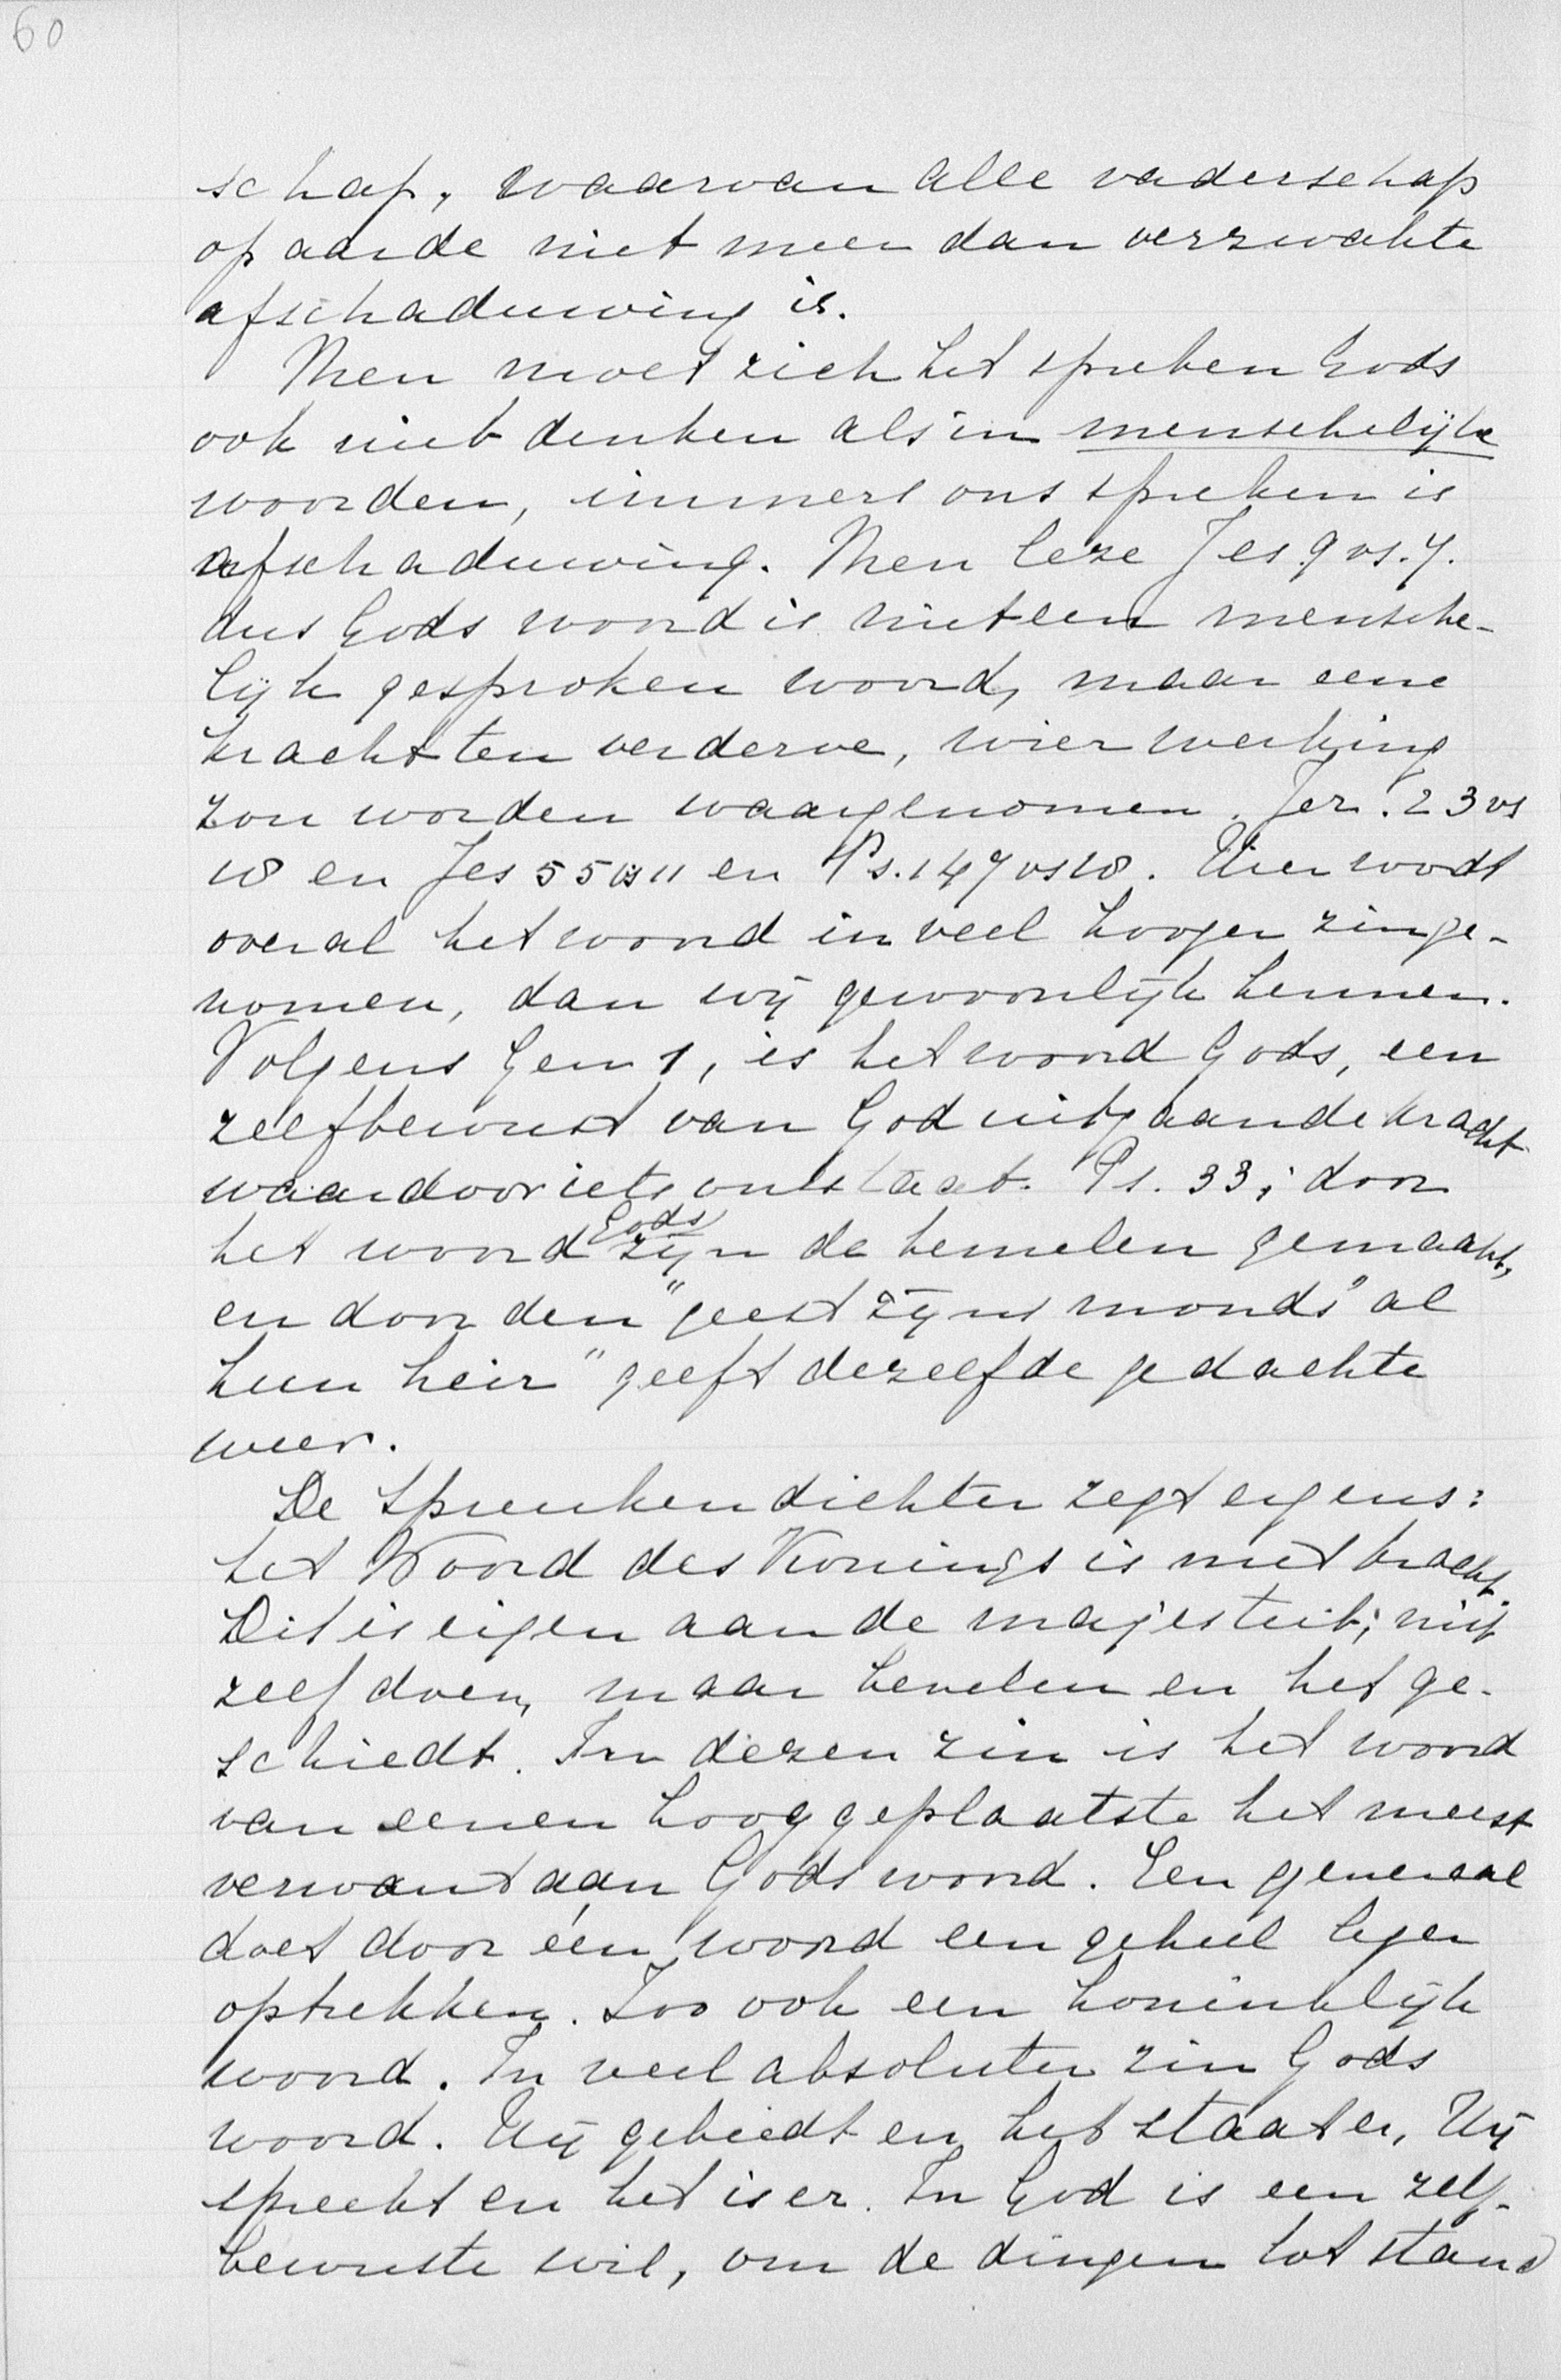 60
schap, waarvan alle vaderschap
op aarde niet meer dan verzwakte
afschaduwing is.
Men moet zich het spreken Gods
ook niet denken als in menschelijke
woorden, immers ons spreken is
afschaduwing. Men leze Jes. 9 vs. 7.
dus Gods woord is niet een mensche-
lijk gesproken woord, maar eene
kracht ten verderve, wier werking
zou worden waargenomen. Jer. 23 vs
18 en Jes 55 vs 11 en Ps. 147 vs 18. Hier wordt
overal het woord in veel hooger zin ge-
nomen, dan wij gewoonlijk kennen.
Volgens Gen 1, is het woord Gods, een
zelfbewust van God uitgaande kracht
waardoor iets ontstaat. Ps. 33; door
het woord Gods zijn de hemelen gemaakt,
en door den "geest zijns monds" al
hun heir" geeft dezelfde gedachte
weer.
De Spreukendichter zegt ergens:
het Woord des Konings is met kracht
Dit is eigen aan de majesteit; niet
zelf doen, maar bevelen en het ge-
schiedt. In dezen zin is het woord
van eenen hooggeplaatste het meest
verwant aan Gods woord. Een generaal
doet door één woord een geheel leger
optrekken. Zoo ook een koninklijk
woord. In veel absoluter zin Gods
woord. Hij gebiedt en het staat er, Hij
spreekt en het is er. In God is een zelf-
bewuste wil, om de dingen tot stand